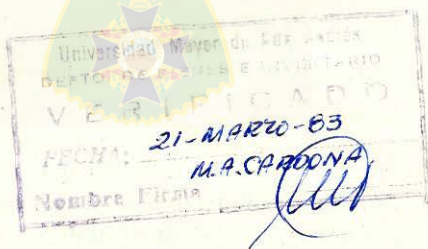 Universidad Mayor de San Andrés
DEPTO. DE BIENES E INVENTARIO
VERIFICADO
FECHA: 21-MARZO-83
M.A. CARDONA
Nombre Firma